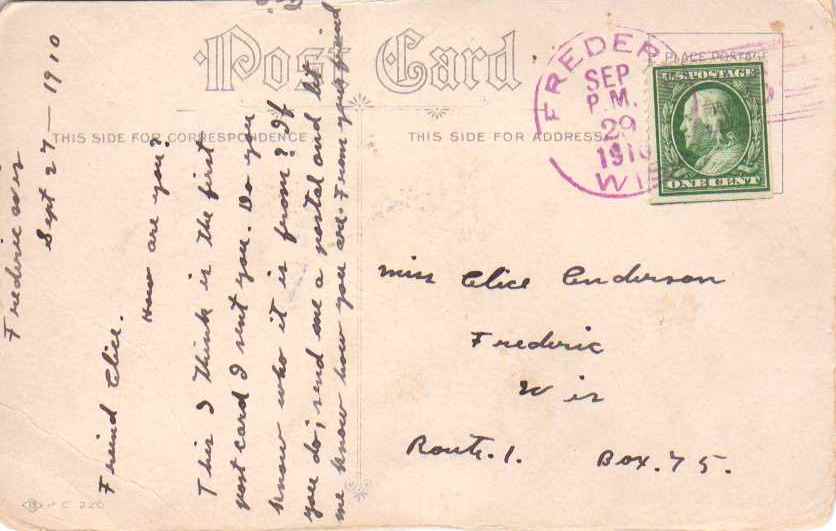 Post Card
THIS SIDE FOR CORRESPONDENCE
THIS SIDE FOR ADDRESS
PLACE POSTAGE
FREDERIC
SEP
P.M.
29
1910
WIS
U.S. POSTAGE
ONE CENT
Frederic Wis
Sept 27 - 1910
Friend Alice.
How are you?
This I Think is the first
post card I sent you. Do you
know who it is from? If
you do, send me a postal and let
me know how you are. From your friend
Miss Alice Anderson
Frederic
Wis
Route. 1. Box. 75.
C 220